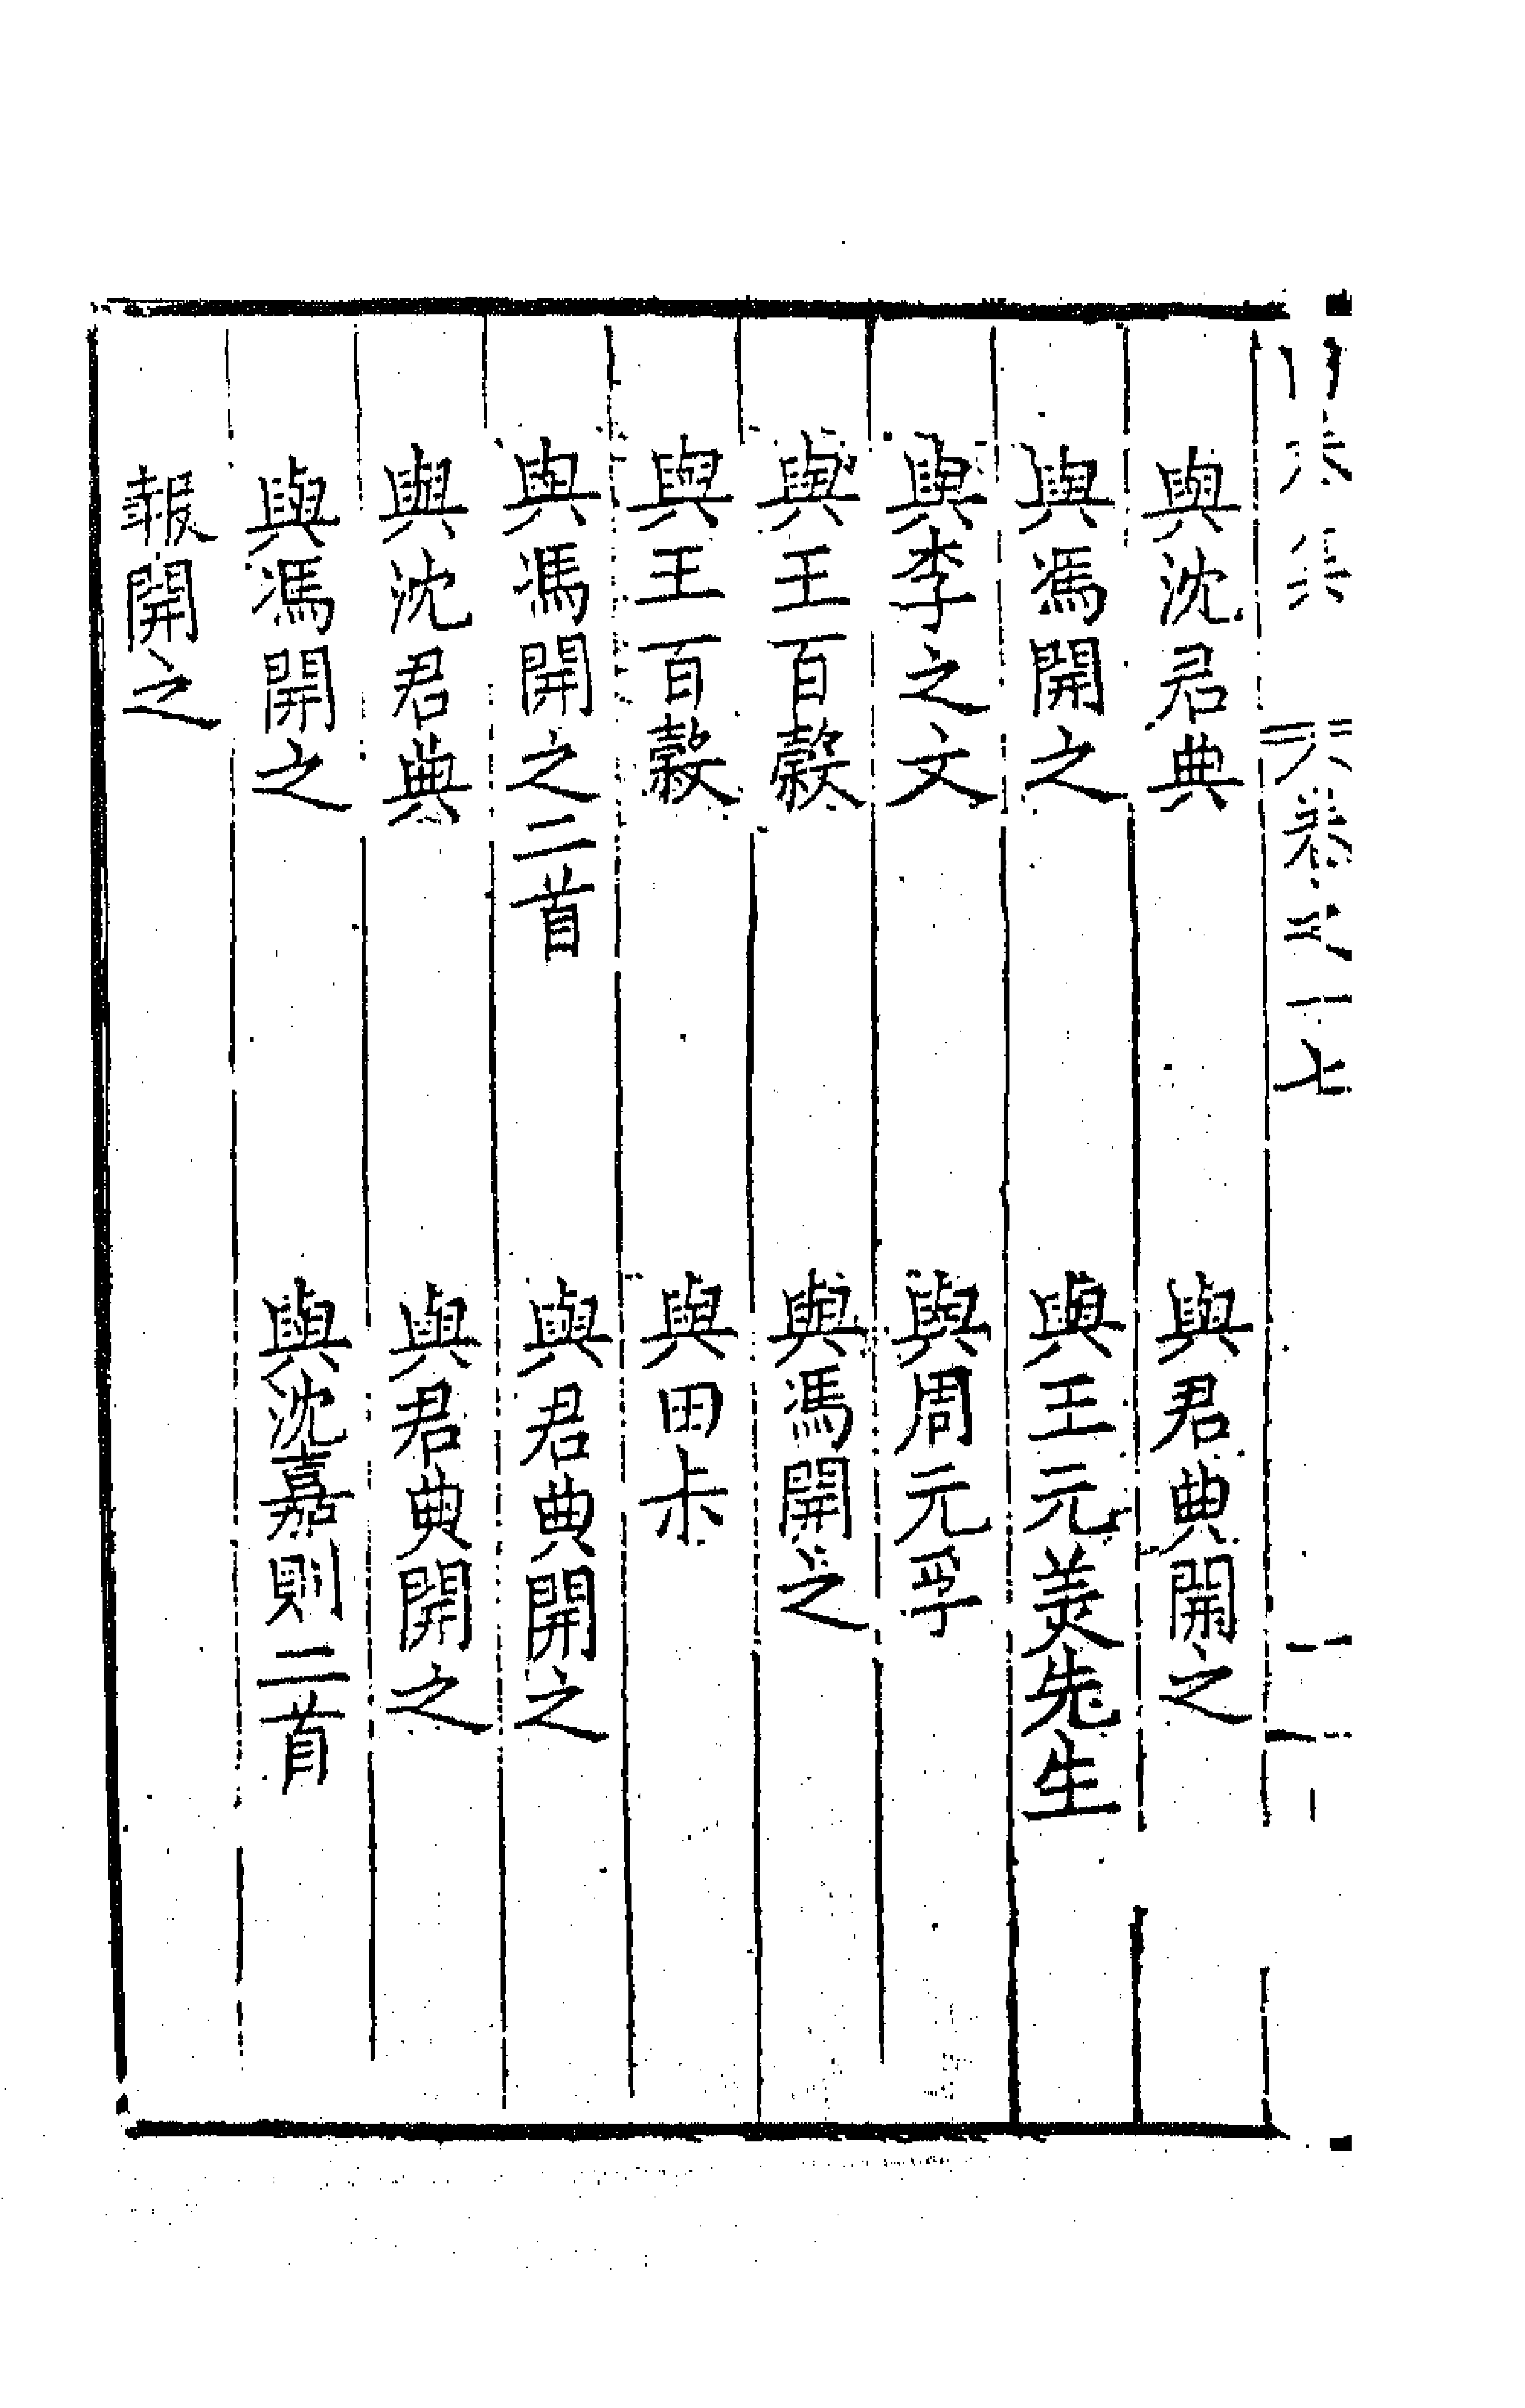 與沈君典　與君典開之
與馮開之　與王元美先生
與李之文　與周元孚
與王百穀　與馮開之
與王百穀　與田尗
與馮開之二首　與君典開之
與沈君典　與君典開之
與馮開之　與沈嘉則二首
報開之